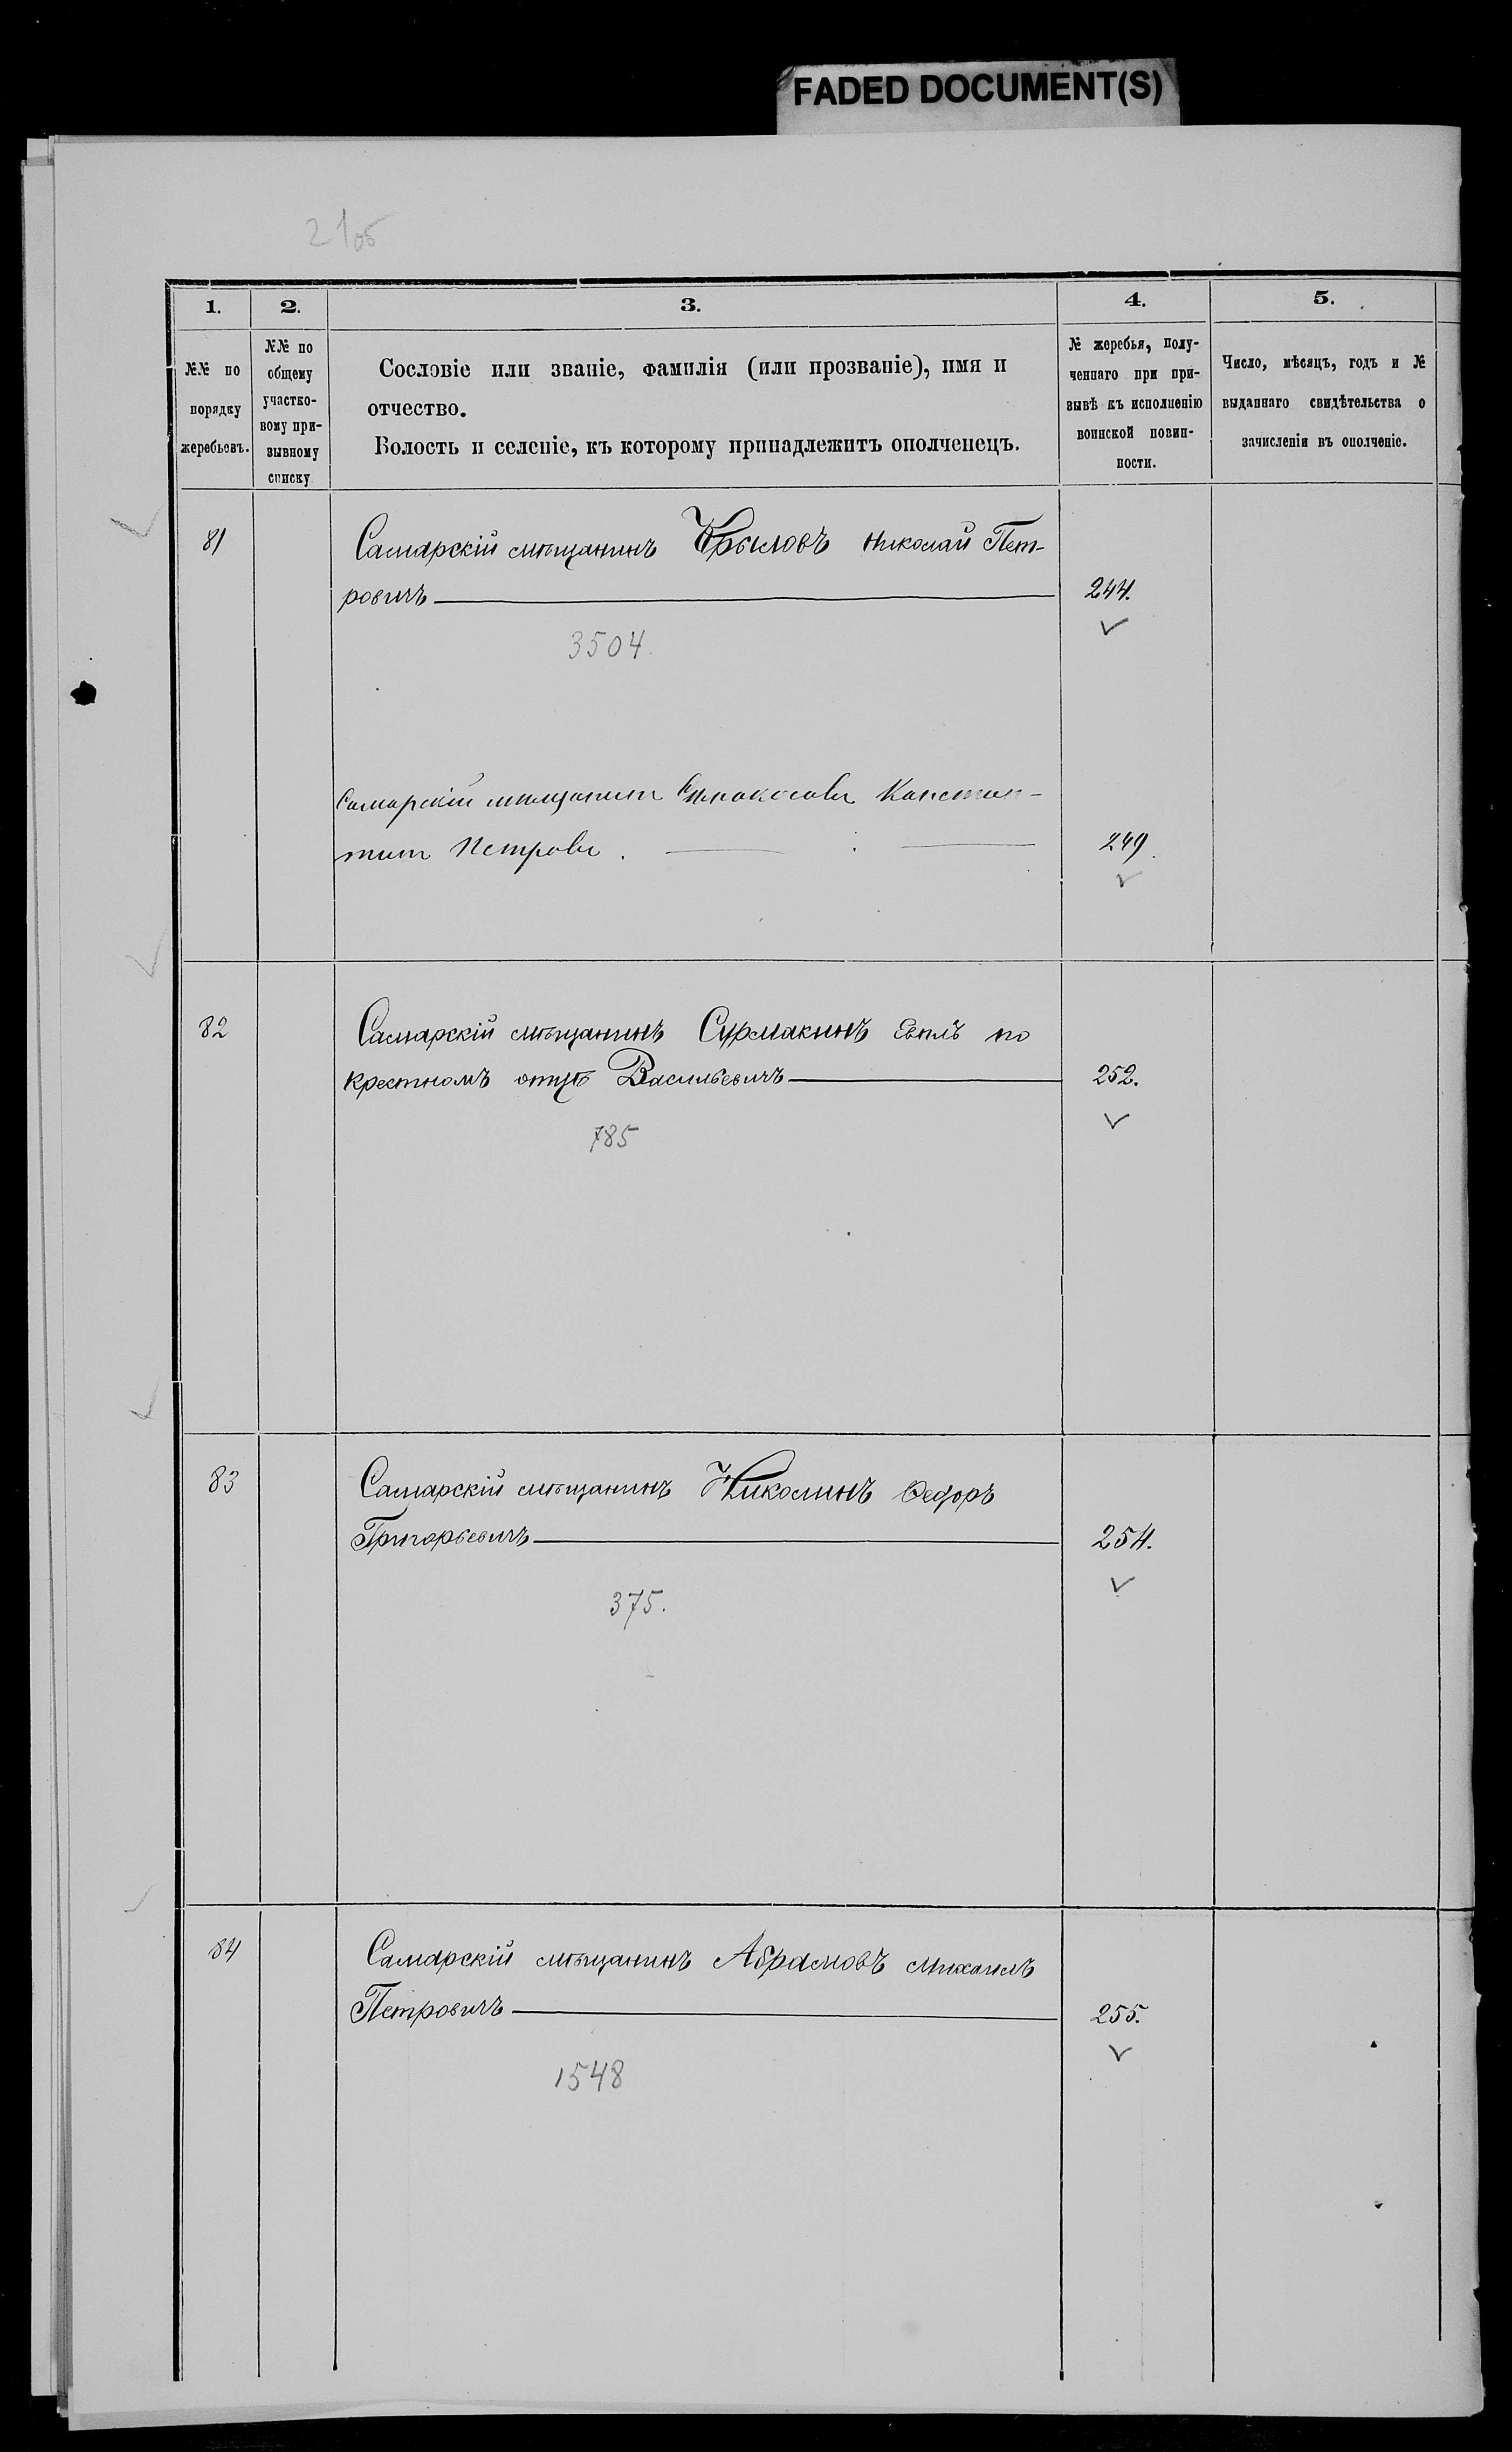 FADED DOCUMENT(S)
21об
1.
2.
3.
4.
5.
№№ по
порядку
жеребьевъ.
№№ по
общему
участко-
вому при-
зывному
списку
Сословіе или званіе, фамилія (или прозваніе), имя и
отчество.
Волость и селеніе, къ которому принадлежитъ ополченецъ.
№ жеребья, полу-
ченнаго при при-
зывѣ къ исполненію
воинской повин-
ности.
Число, мѣсяцъ, годъ и №
выданнаго свидѣтельства о
зачисленіи въ ополченіе.
81
Самарскій мѣщанинъ Крыловъ Николай Пет-
ровичъ
244.
3504.
Самарскій мѣщанинъ Констан-
тинъ Петровъ.
249.
82
Самарскій мѣщанинъ Сурмакинъ по
крестномъ отцѣ Васильевичъ
252.
785
83
Самарскій мѣщанинъ Николинъ Ѳедоръ
Григорьевичъ
254.
375.
84
Самарскій мѣщанинъ Абрамовъ Михаилъ
Петровичъ
255.
1548